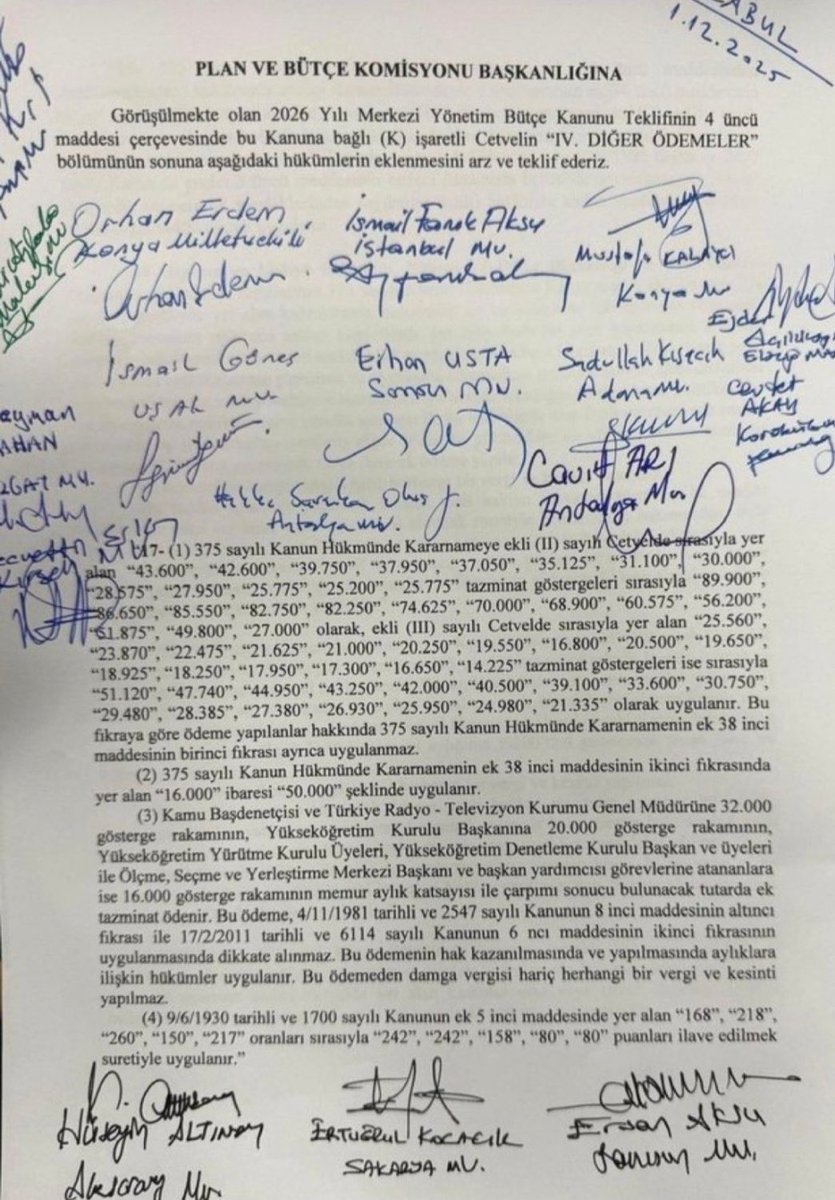 KABUL
1.12.2025
PLAN VE BÜTÇE KOMİSYONU BAŞKANLIĞINA
Görüşülmekte olan 2026 Yılı Merkezi Yönetim Bütçe Kanunu Teklifinin 4 üncü
maddesi çerçevesinde bu Kanuna bağlı (K) işaretli Cetvelin “IV. DİĞER ÖDEMELER”
bölümünün sonuna aşağıdaki hükümlerin eklenmesini arz ve teklif ederiz.
Orhan Erdem
Konya Milletvekili
Orhan Erdem
İsmail Faruk Aksu
İstanbul Mv.
Mustafa KALAYCI
Konya Mv
İsmail Güneş
UŞAK MV.
Erhan USTA
Samsun MV.
Sadullah Kısacık
Adana Mv.
Ejder
Açıkkapı
Elazığ
Cevdet
AKAY
Karabük
Hakkı Saruhan Oluç
Antalya Mv.
Cavit ARI
Antalya Mv.
17- (1) 375 sayılı Kanun Hükmünde Kararnameye ekli (II) sayılı Cetvelde sırasıyla yer
alan “43.600”, “42.600”, “39.750”, “37.950”, “37.050”, “35.125”, “31.100”, “30.000”,
“28.575”, “27.950”, “25.775”, “25.200”, “25.775” tazminat göstergeleri sırasıyla “89.900”,
“86.650”, “85.550”, “82.750”, “82.250”, “74.625”, “70.000”, “68.900”, “60.575”, “56.200”,
“51.875”, “49.800”, “27.000” olarak, ekli (III) sayılı Cetvelde sırasıyla yer alan “25.560”,
“23.870”, “22.475”, “21.625”, “21.000”, “20.250”, “19.550”, “16.800”, “20.500”, “19.650”,
“18.925”, “18.250”, “17.950”, “17.300”, “16.650”, “14.225” tazminat göstergeleri ise sırasıyla
“51.120”, “47.740”, “44.950”, “43.250”, “42.000”, “40.500”, “39.100”, “33.600”, “30.750”,
“29.480”, “28.385”, “27.380”, “26.930”, “25.950”, “24.980”, “21.335” olarak uygulanır. Bu
fıkraya göre ödeme yapılanlar hakkında 375 sayılı Kanun Hükmünde Kararnamenin ek 38 inci
maddesinin birinci fıkrası ayrıca uygulanmaz.
(2) 375 sayılı Kanun Hükmünde Kararnamenin ek 38 inci maddesinin ikinci fıkrasında
yer alan “16.000” ibaresi “50.000” şeklinde uygulanır.
(3) Kamu Başdenetçisi ve Türkiye Radyo - Televizyon Kurumu Genel Müdürüne 32.000
gösterge rakamının, Yükseköğretim Kurulu Başkanına 20.000 gösterge rakamının,
Yükseköğretim Yürütme Kurulu Üyeleri, Yükseköğretim Denetleme Kurulu Başkan ve üyeleri
ile Ölçme, Seçme ve Yerleştirme Merkezi Başkanı ve başkan yardımcısı görevlerine atananlara
ise 16.000 gösterge rakamının memur aylık katsayısı ile çarpımı sonucu bulunacak tutarda ek
tazminat ödenir. Bu ödeme, 4/11/1981 tarihli ve 2547 sayılı Kanunun 8 inci maddesinin altıncı
fıkrası ile 17/2/2011 tarihli ve 6114 sayılı Kanunun 6 ncı maddesinin ikinci fıkrasının
uygulanmasında dikkate alınmaz. Bu ödemenin hak kazanılmasında ve yapılmasında aylıklara
ilişkin hükümler uygulanır. Bu ödemeden damga vergisi hariç herhangi bir vergi ve kesinti
yapılmaz.
(4) 9/6/1930 tarihli ve 1700 sayılı Kanunun ek 5 inci maddesinde yer alan “168”, “218”,
“260”, “150”, “217” oranları sırasıyla “242”, “242”, “158”, “80”, “80” puanları ilave edilmek
suretiyle uygulanır.”
Hüseyin ALTINSOY
Aksaray Mv.
ERTUĞRUL KOCACIK
SAKARYA MV.
Ersan AKSU
Samsun Mv.